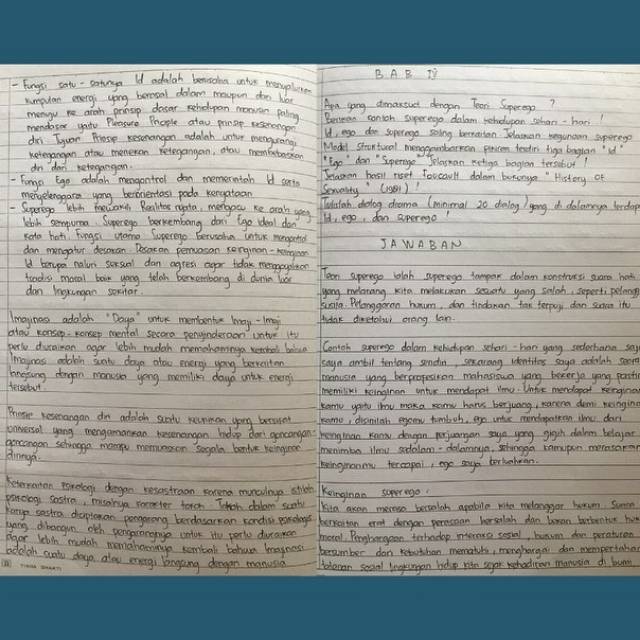 - Fungsi satu-satunya Id adalah berusaha untuk menyalurkan
kumpulan energi yang berasal dalam maupun dari luar
menuju ke arah prinsip dasar kehidupan manusia paling
mendasar yaitu Pleasure Principle atau prinsip kesenangan
diri. Tujuan Prinsip kesenangan adalah untuk mengurangi
ketegangan atau menekan ketegangan, atau membebaskan
diri dari ketegangan.
- Fungsi Ego adalah mengontrol dan memerintah Id serta
menyelenggara yang berorientasi pada kenyataan
- Superego lebih mewakili Realitas nyata, mengacu ke arah yang
lebih sempurna. Superego berkembang dari Ego ideal dan
kata hati. Fungsi utama Superego berusaha untuk mengontrol
dan mengatur desakan desakan pemuasan keinginan-keinginan
Id berupa naluri seksual dan agresi agar tidak
tradisi moral baik yang telah berkembang di dunia luar
dan lingkungan sekitar.
Imajinasi adalah "Daya" untuk membentuk Imaji-Imaji
atau konsep-konsep mental secara penginderaan untuk itu
perlu diuraikan agar lebih mudah memahaminya kembali bahwa
Imajinasi adalah suatu daya atau energi yang berkaitan
langsung dengan manusia yang memiliki daya untuk energi
tersebut.
Prinsip kesenangan diri adalah suatu keunikan yang bersifat
universal yang mengamankan kesenangan hidup dari goncangan-
goncangan sehingga mampu memuaskan segala bentuk keinginan
dirinya.
Keterkaitan psikologi dengan kesastraan karena munculnya istilah
psikologi sastra, misalnya karakter tokoh. Tokoh dalam suatu
karya sastra diciptakan pengarang berdasarkan kondisi psikologis
yang dibangun oleh pengarangnya untuk itu perlu diuraikan
agar lebih mudah memahaminya kembali bahwa Imajinasi
adalah suatu daya atau energi langsung dengan manusia
BAB IV
Apa yang dimaksud dengan Teori Superego ?
Berikan contoh superego dalam kehidupan sehari-hari !
Id, ego dan superego saling berkaitan Jelaskan kegunaan superego
Model Struktural menggambarkan pikiran terdiri tiga bagian "Id"
"Ego" dan "Superego" Jelaskan ketiga bagian tersebut !
Jelaskan hasil riset Foucault dalam bukunya "History of
Sexuality" (1981) !
Tulislah dialog drama (minimal 20 dialog) yang di dalamnya terdap
Id, ego, dan superego !
JAWABAN
Teori superego ialah superego tampak dalam konstruksi suara hati
yang melarang kita melakukan sesuatu yang salah, seperti pelang
susila. Pelanggaran hukum, dan tindakan tak terpuji dan suara itu
tidak diketahui orang lain.
Contoh superego dalam kehidupan sehari-hari yang sederhana saj
saya ambil tentang sendiri, sekarang identitas saya adalah seora
manusia yang berprofesikan mahasiswa yang bekerja yang pasti
memiliki keinginan untuk mendapat ilmu. Untuk mendapat keinginan
kamu yaitu ilmu maka kamu harus berjuang, karena demi keingin
kamu, disinilah egomu tumbuh, ego untuk mendapatkan ilmu dari
keinginan kamu dengan perjuangan saya yang gigih dalam belajar
menimba ilmu sedalam-dalamnya, sehingga kamupun merasakan
keinginanmu tercapai, ego saya terbuahkan.
Keinginan superego :
Kita akan merasa bersalah apabila kita melanggar hukum. Suara
berkaitan erat dengan perasaan bersalah dan bukan berbentuk huk
moral. Penghargaan terhadap interaksi sosial, hukum dan peraturan
bersumber dari kebutuhan mematuhi, menghargai dan mempertahan
tatanan sosial lingkungan hidup kita sejak kehadiran manusia di bumi